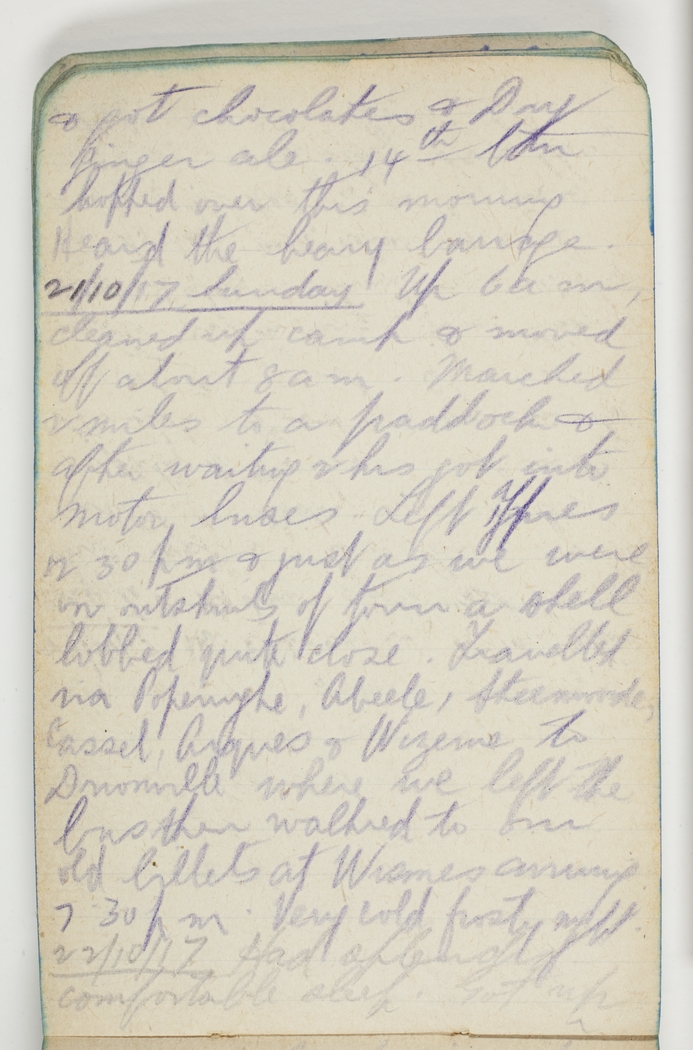 & got chocolates & Dry
Ginger ale. 14th Btn
hopped over this morning
Heard the heavy barrage.
21/10/17 Sunday Up 6 a m,
cleaned up camp & moved
off about 8 am. Marched
2 miles to a paddock &
after waiting 2 hrs got into
motor buses. Left Ypres
30 pm & just as we were
on outskirts of town a shell
lobbed quite close. Travelled
via Poperinghe, Abeele, Steenvoorde,
Cassel, Arques & Wizerne to
where we left the
bus then walked to our
old billets at Wismes arriving
7 30 p m. Very cold frosty night.
22/10/17 Had splendid
comfortable sleep. Got up